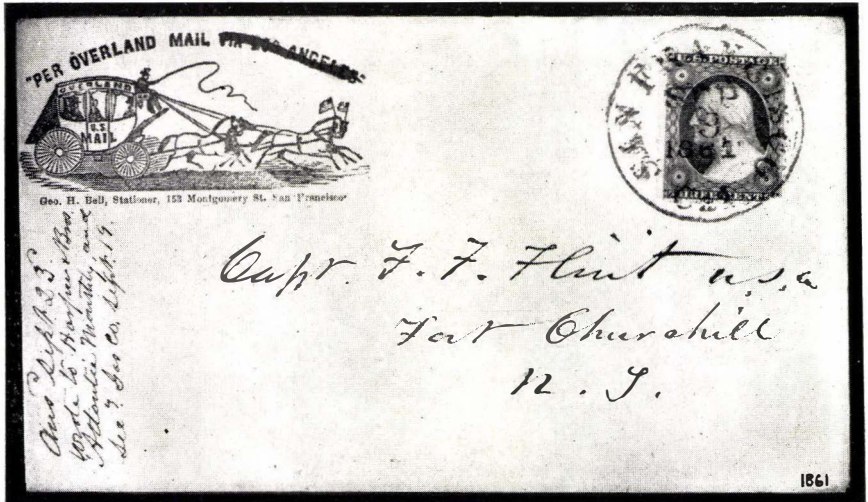 "PER OVERLAND MAIL VIA LOS ANGELES"
OVERLAND
U.S
MAIL
Geo. H. Bell, Stationer, 153 Montgomery St. San Francisco
SAN FRANCISCO
SEP
9
1861
U.S. POSTAGE
THREE CENTS
Capt. F. F. Flint U.S.A
Fort Churchill
N. T.
Ans Sept. 23
wrote to Harper & Bro.
Atlantic Monthly and
Sept. 19.
1861